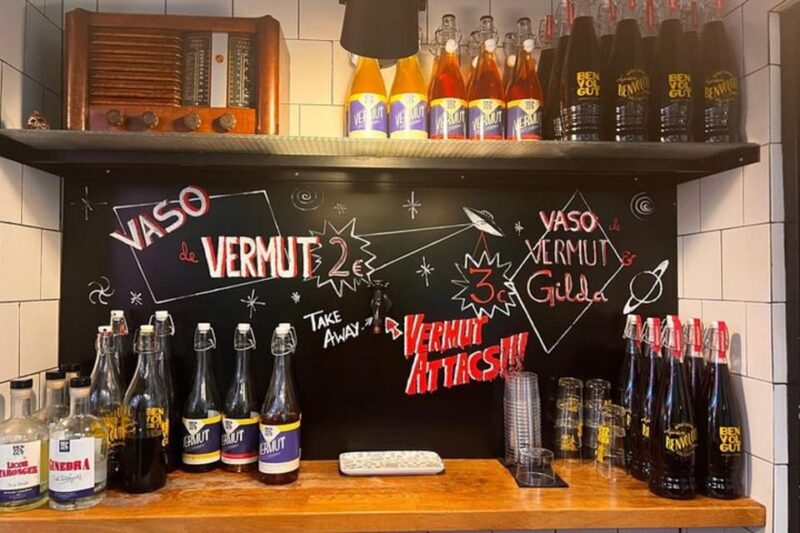 VERMUT
VERMUT
VERMUT
VERMUT
VERMUT
BEN
VOL
GUT
BENVOLGUT
BEN
VOL
GUT
BENVOLGUT
VASO
de VERMUT 2€
TAKE
AWAY
3€
VASO de
VERMUT &
Gilda
VERMUT
ATTACS!!!
BEN
VOL
GUT
LICOR
TARONGER
GINEBRA
VERMUT
VERMUT
VERMUT
BENVOLGUT
BEN
VOL
GUT